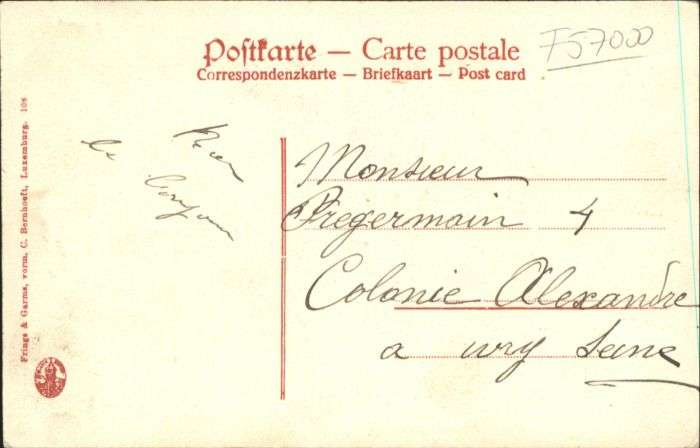 Postkarte — Carte postale
Correspondenzkarte — Briefkaart — Post card
F57000
Frings & Garms, vorm. C. Bernhoeft, Luxemburg. 108
Bien
le bonjour
Monsieur
Pregermain 4
Colonie Alexandre
a ivry Seine